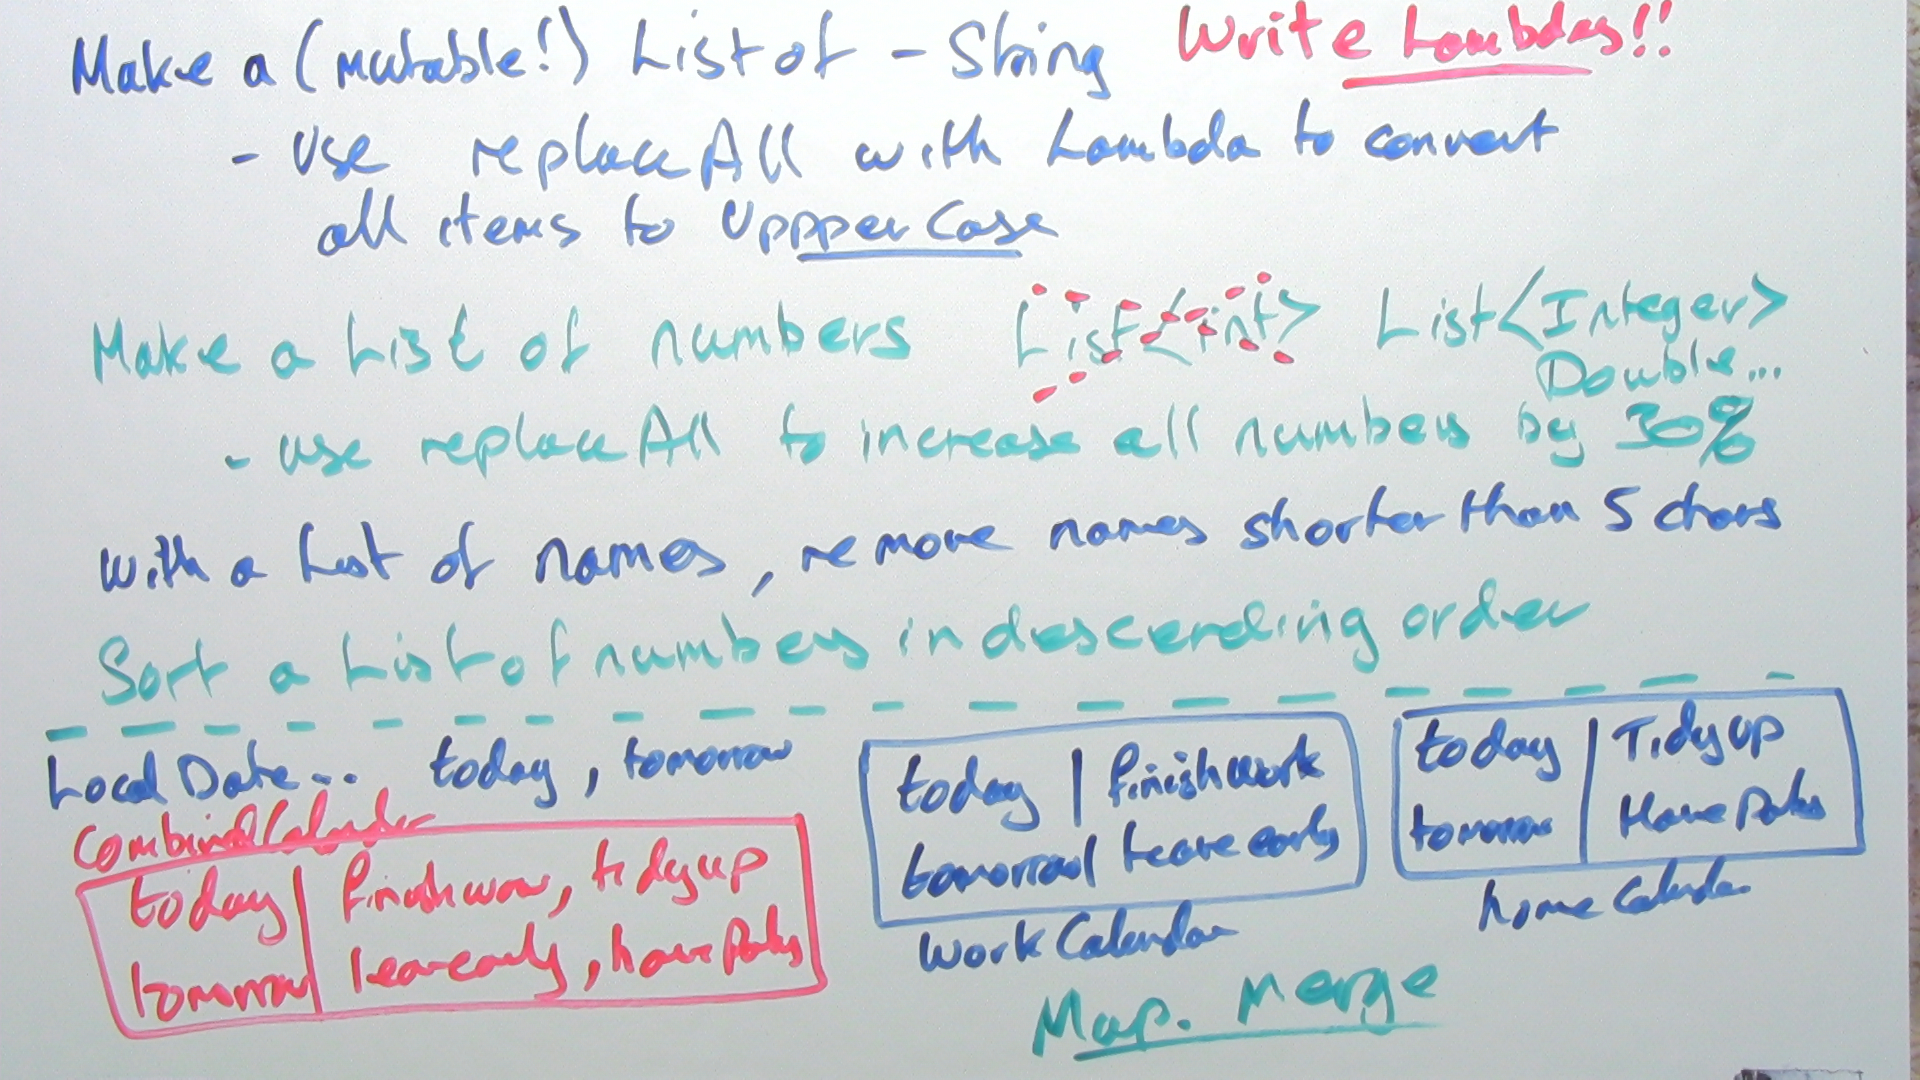 Make a (mutable!) List of - String Write Lambdas!!
- Use replaceAll with Lambda to convert
all items to UppperCase
Make a List of numbers List<int> List<Integer>
Double...
- use replaceAll to increase all numbers by 30%
With a List of names, remove names shorter than 5 chars
Sort a List of numbers in descending order
LocalDate... today, tomorrow
today | finish work
tomorrow | Leave early
Work Calendar
today | Tidy up
tomorrow | Have
home Calendar
Combined Calendar
today | tidy up
tomorrow | leave early, have
Map. Merge